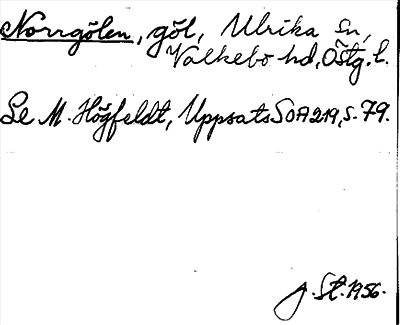 Norrgölen, göl, Ulrika sn,
Valkebo hd, Östg. l.
Se M. Högfeldt, Uppsats SOA 219, s. 79.
J. St. 1956.